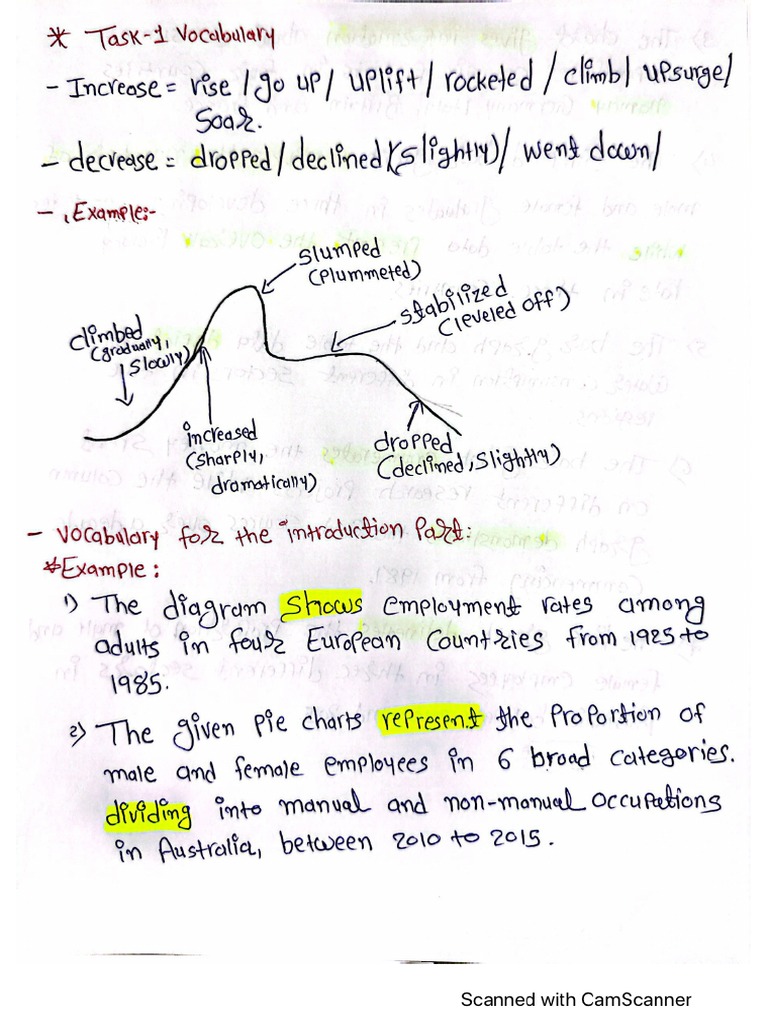 * Task-1 Vocabulary
- Increase = rise / go up / uplift / rocketed / climb / upsurge /
Soar.
- decrease = dropped / declined (slightly) / went down /
- Example:-
slumped
(plummeted)
stabilized
(leveled off)
climbed
(gradually,
slowly)
increased
(sharply,
dramatically)
dropped
(declined, slightly)
- vocabulary for the introduction Part:
* Example:
1) The diagram shows employment rates among
adults in four European Countries from 1925 to
1985.
2) The given pie charts represent the proportion of
male and female employees in 6 broad categories.
dividing into manual and non-manual occupations
in Australia, between 2010 to 2015.
Scanned with CamScanner